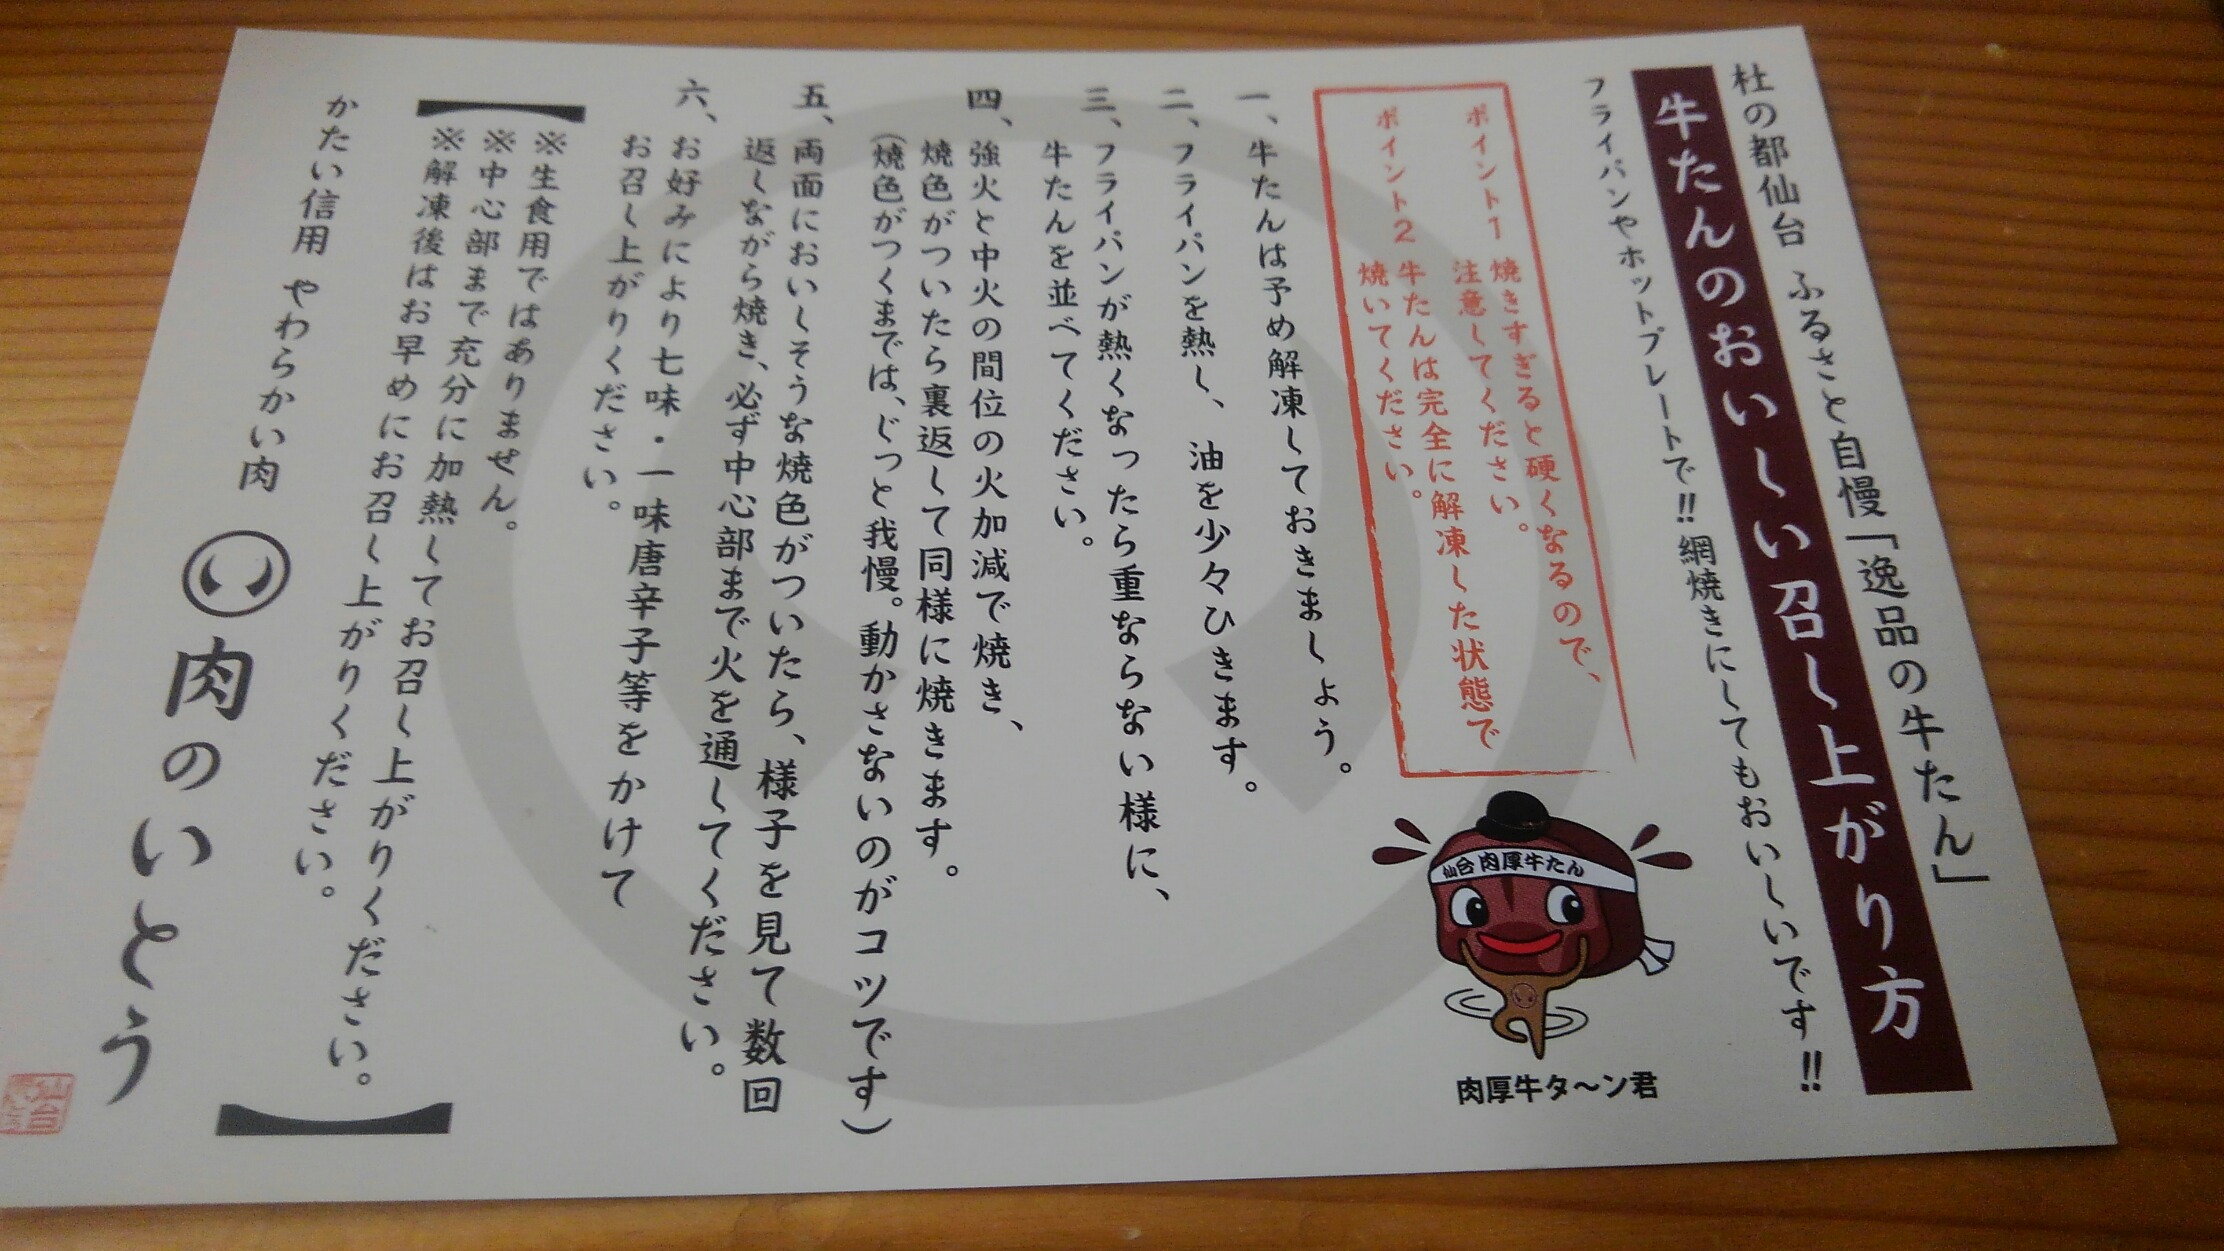 杜の都仙台 ふるさと自慢「逸品の牛たん」
牛たんのおいしい召し上がり方
フライパンやホットプレートで!!網焼きにしてもおいしいです!!
ポイント1 焼きすぎると硬くなるので、
注意してください。
ポイント2 牛たんは完全に解凍した状態で
焼いてください。
仙台 肉厚牛たん
肉厚牛タ〜ン君
一、牛たんは予め解凍しておきましょう。
二、フライパンを熱し、油を少々ひきます。
三、フライパンが熱くなったら重ならない様に、
牛たんを並べてください。
四、強火と中火の間位の火加減で焼き、
焼色がついたら裏返して同様に焼きます。
(焼色がつくまでは、じっと我慢。動かさないのがコツです)
五、両面においしそうな焼色がついたら、様子を見て数回
返しながら焼き、必ず中心部まで火を通してください。
六、お好みにより七味・一味唐辛子等をかけて
お召し上がりください。
※生食用ではありません。
※中心部まで充分に加熱してお召し上がりください。
※解凍後はお早めにお召し上がりください。
かたい信用 やわらかい肉 い 肉のいとう
仙台